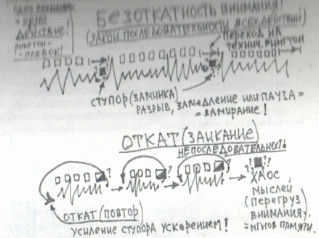 ОДНО
ДЕЙСТВИЕ!
БЕЗОТКАТНОСТЬ ВНИМАНИЯ!
(ЗАКОН ПОСЛЕДОВАТЕЛЬНОСТИ ВСЕХ ДЕЙСТВИЙ)
ПЕРЕХОД НА
ТЕХНИК.
СТУПОР (ЗАМИНКА)
РАЗРЫВ, ЗАМЕДЛЕНИЕ ИЛИ ПАУЗА =
= ЗАМИРАНИЕ!
ОТКАТ (ЗАИКАНИЕ)
НЕПОСЛЕДОВАТЕЛЬНОСТЬ
? ? ? ?
ХАОС
МЫСЛЕЙ
(ПЕРЕГРУЗ
ВНИМАНИЯ.
ПАМЯТИ.
ОТКАТ (ПОВТОР)
УСИЛЕНИЕ СТУПОРА УСКОРЕНИЕМ!